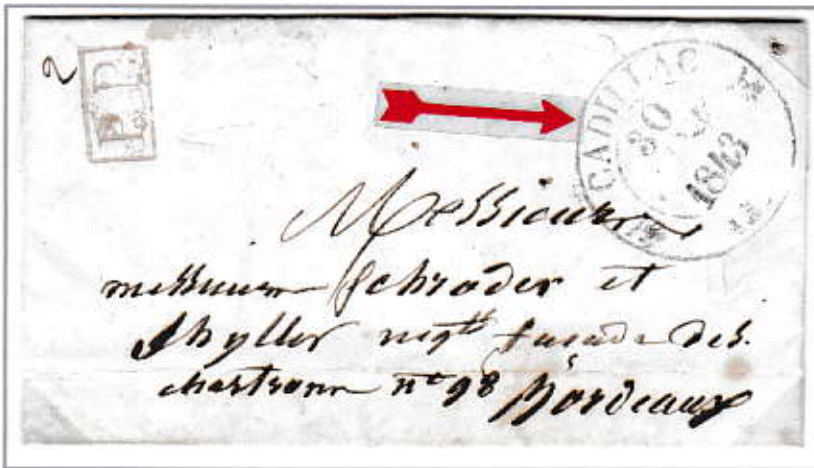 2
P.P.
CADILLAC
30
1843
Messieurs
messieurs Schroder et
Shyller negts facade des
chartrons n° 98 Bordeaux